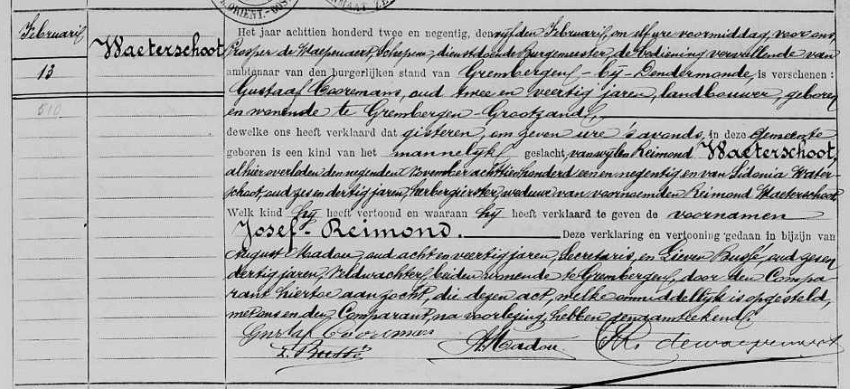 Februarij
13
510
Waeterschoot
Het jaar achttien honderd twee en negentig, den vijfden Februarij, om elf ure voormiddag, voor ons,
Prosper de Waepenaert, Schepene, dienstdoende Burgemeester de bediening vervullende van
ambtenaar van den burgerlijken stand van Grembergen-bij-Dendermonde, is verschenen:
Gustaaf Cooremans, oud twee en veertig jaren, landbouwer, geboren
en wonende te Grembergen-Grootzand,
dewelke ons heeft verklaard dat gisteren, om zeven ure 's avonds, in deze gemeente
geboren is een kind van het mannelijk geslacht, van wylen Reimond Waeterschoot,
alhier overleden den negenden November achttienhonderd een en negentig en van Sidonia Water-
schoot, oud zes en dertig jaren, herbergierster, weduwe van voornoemden Reimond Waeterschoot
Welk kind hy heeft vertoond en waaraan hy heeft verklaard te geven de voornamen
Josef-Reimond. Deze verklaring en vertooning gedaan in bijzijn van
August Madou, oud acht en veertig jaren, Secretaris, en Lieven Bussé, oud zes en
dertig jaren, Veldwachter, beiden wonende te Grembergen, door den Compa-
rant hiertoe aangezocht, die dezen act, welke onmiddellyk is opgesteld,
met ons en den Comparant, na voorlezing, hebben genaamteekend.
Gustaf Cooremans
L. Bussé A Madou. dewaepenaert